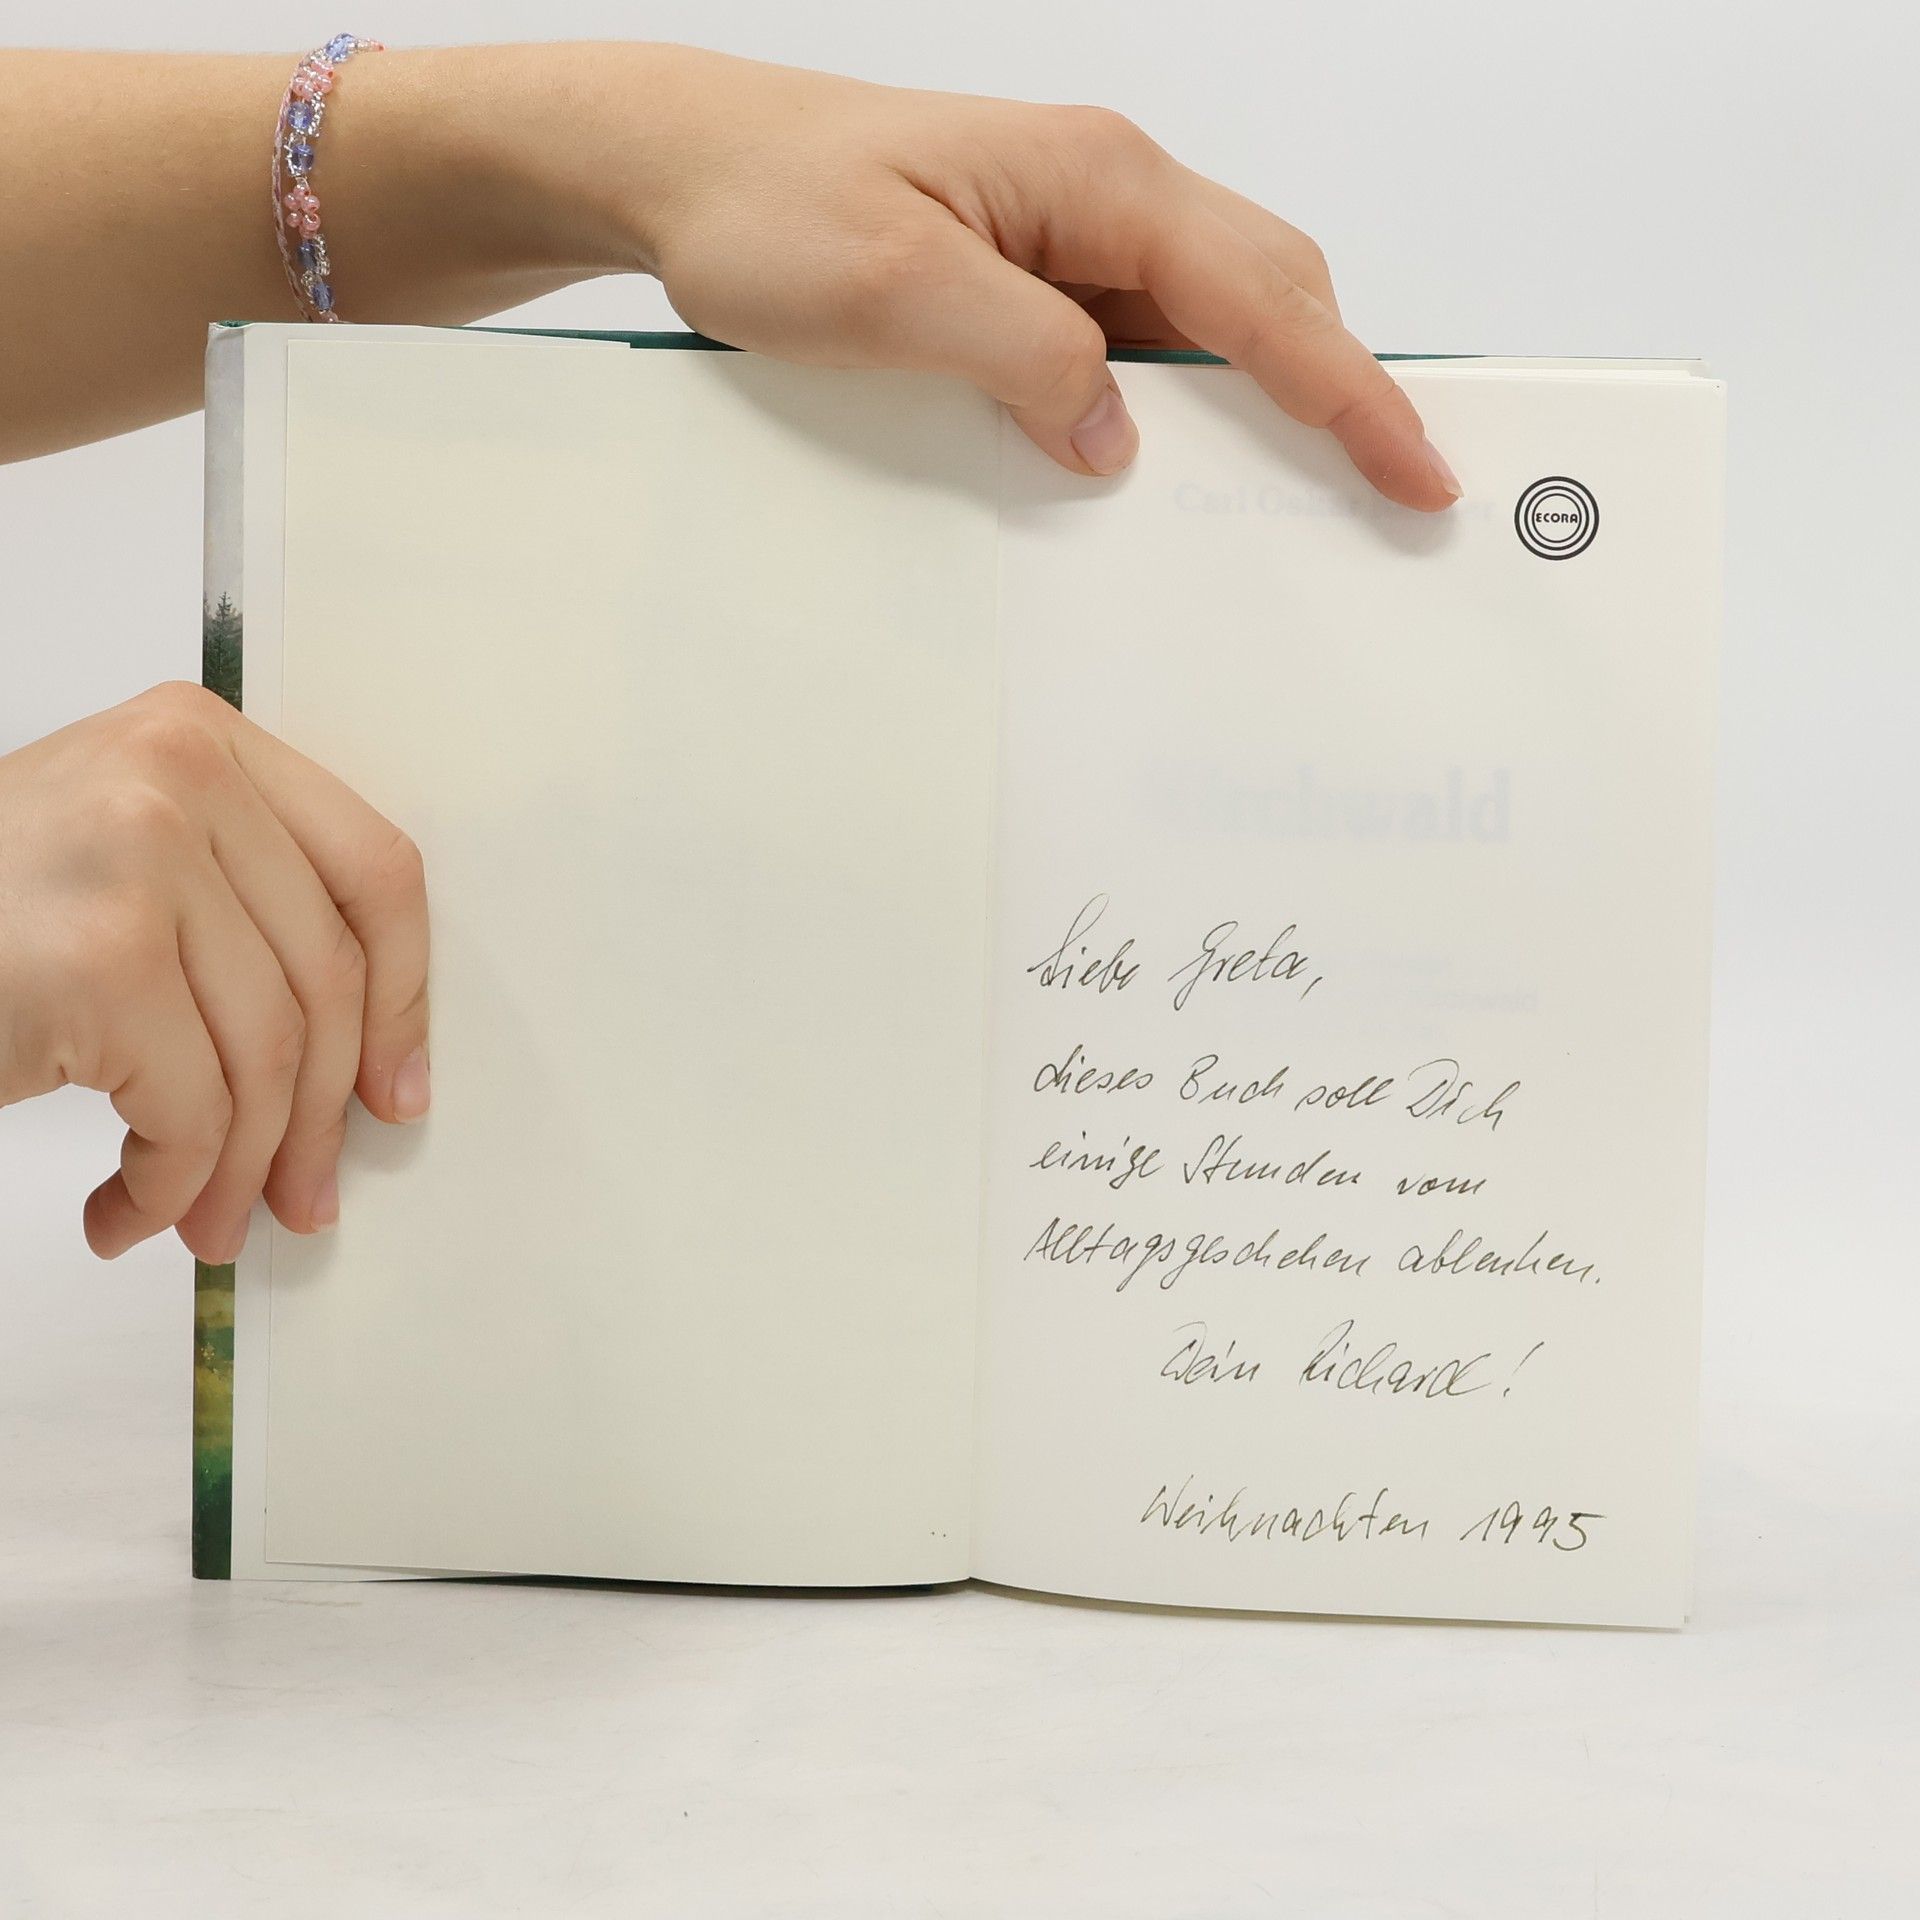 Carl
ECORA
Liebe Greta,
dieses Buch soll Dich
einige Stunden vom
Alltagsgeschehen ablenken.
Dein Richard!
Weihnachten 1995